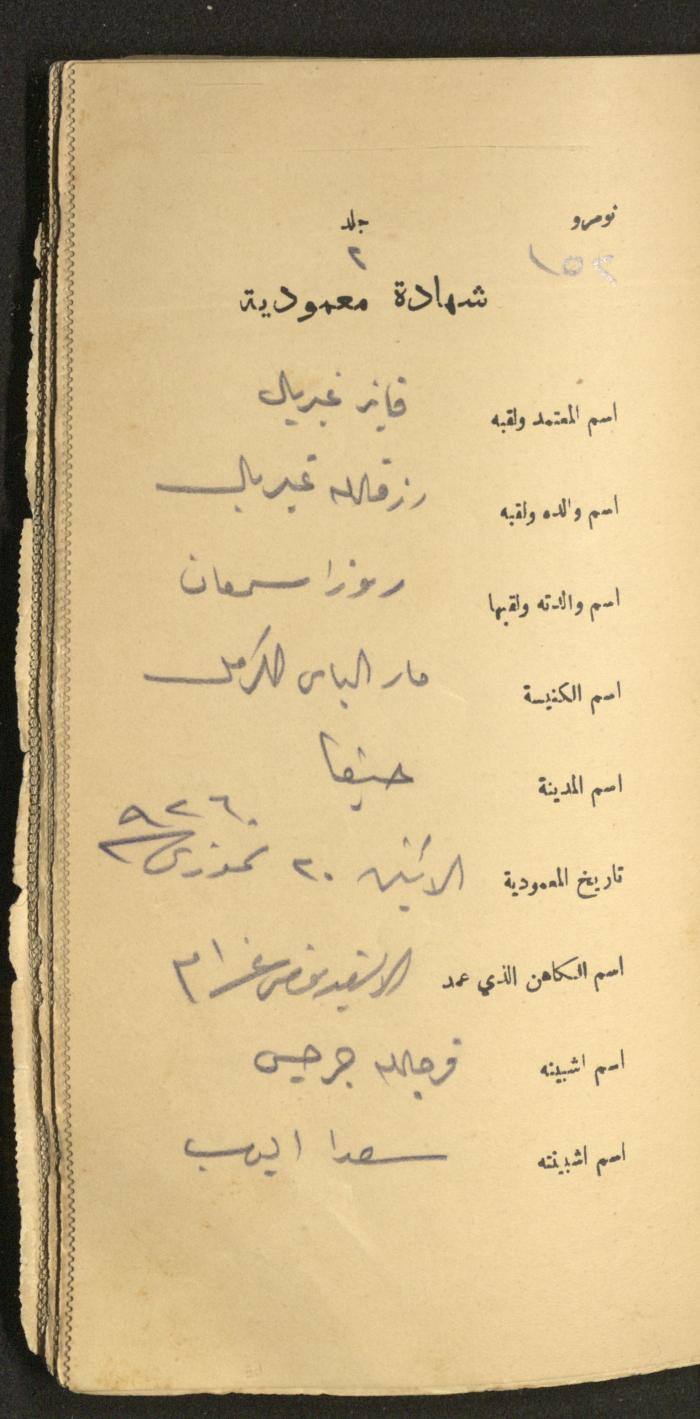 نومرو جلد
١٥٢ ٢
شهادة معمودية
اسم المعتمد ولقبه فايز غبريال
اسم والده ولقبه رزقالله غبريال
اسم والدته ولقبها روزا سمعان
اسم الكنيسة مار الياس الكرمل
اسم المدينة حيفا
تاريخ المعمودية الاثنين ٢٠ تموز سنة ٩٢٦
اسم الكاهن الذي عمد
اسم اشبينه فرجالله جرجس
اسم اشبينته سعدا ايوب